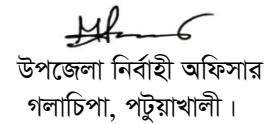 উপজেলা নির্বাহী অফিসার
গলাচিপা, পটুয়াখালী।